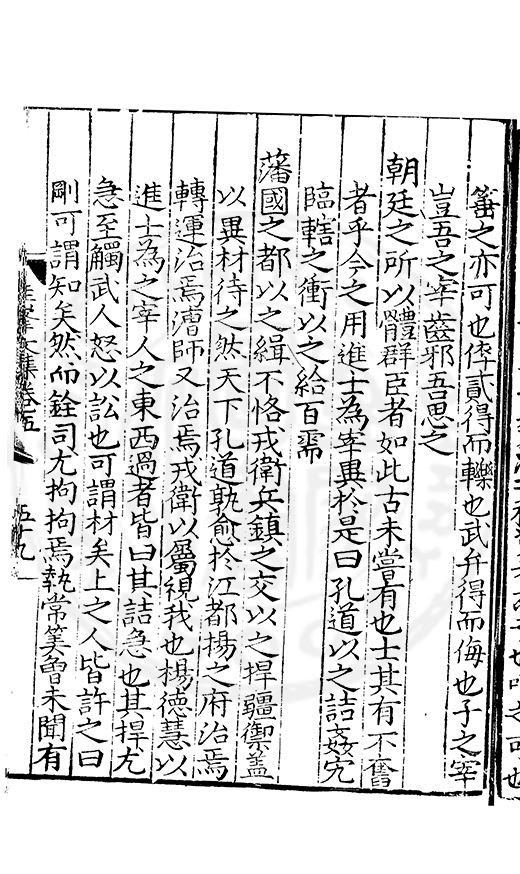 籓之亦可也倅貳得而轢也武弁得而侮也子之宰
豈吾之宰齒邪吾思之
朝廷之所以體群臣者如此古未嘗有也士其有不奮
者乎今之用進士為宰異於是曰孔道以之詰姦宄
臨轄之衝以之給百需
藩國之都以之緝不恪戎衛兵鎮之交以之捍疆禦蓋
以異材待之然天下孔道孰愈於江都揚之府治焉
轉運治焉漕師又治焉戎衛以屬視我也楊德慧以
進士為之宰人之東西過者皆曰其詰急也其捍尢
急至觸武人怒以訟也可謂材矣上之人皆許之曰
剛可謂知矣然而銓司尢拘拘焉執常筭曾未聞有
文集卷五
五十九